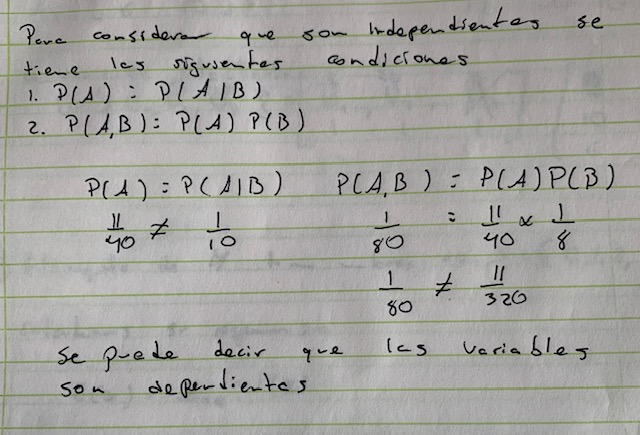 Para considerar que son independientes se
tiene las siguientes condiciones
1. P(A) = P(A|B)
2. P(A,B) = P(A) P(B)
P(A) = P(A|B) P(A,B) = P(A)P(B)
11/40 ≠ 1/10 1/80 = 11/40 x 1/8
1/80 ≠ 11/320
Se puede decir que las variables
son dependientes